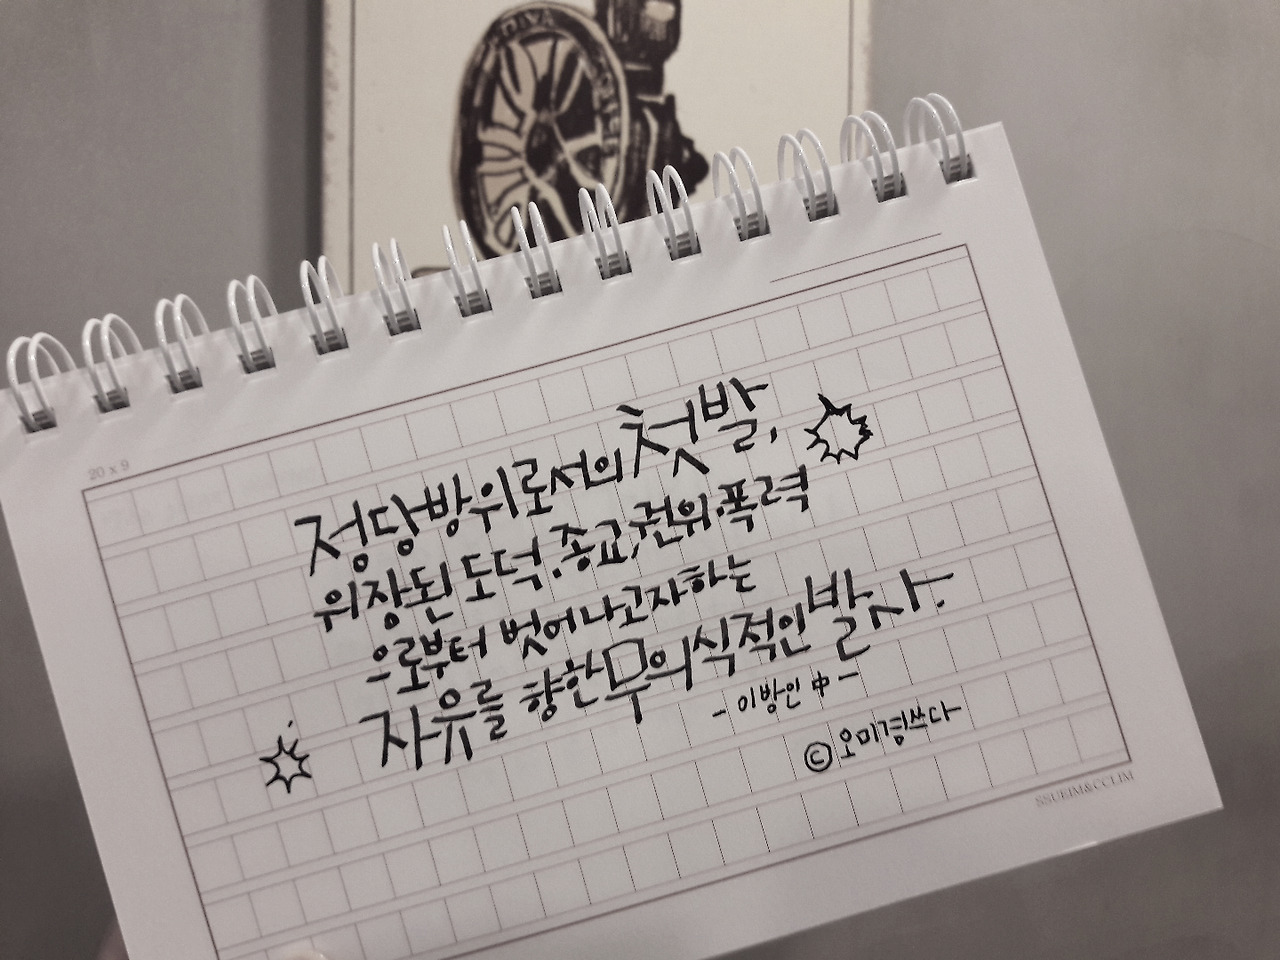 20 x 9
정당방위로서의 첫발,
위장된 도덕.종교,권위.폭력
으로부터 벗어나고자하는
자유를 향한 무의식적인 발사.
- 이방인 中 -
© 오미경쓰다
SSUEIM&CCLIM